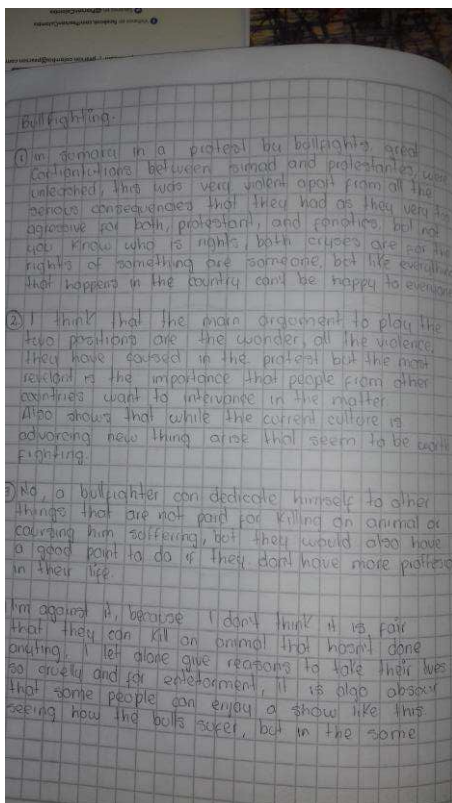 Bullfighting.
① in sumary in a protest bu bollfights, great
confrontations between simad and protestantes, were
unleashed, this was very violent apart from all the
serious consequences that they had as they very
agressive for both, protestant, and fanatics, but not
you know who is rights, both cryses are for the
rights of something are someone, bot like everything
that happens in the country cant be happy to everyone
② I think that the main argument to play the
two positions are the wonder, all the violence,
they have caused in the protest but the most
relevant is the importance that people from other
countries want to intervange in the matter.
Also shows that while the current culture is
advancing new thing arise that seem to be worth
fighting.
No, a bullfighter can dedicate himself to other
things that are not paid for killing an animal or
coursing him soffering, but they would also have
a good point to do if they dont have more
in their life.
I'm against it, because I dont think it is fair
that they can kill an animal that hasnt done
anyting, I let alone give reasons to take their lives
so cruelly and for, it is also absour
that some people can enjoy a show like this
seeing how the bulls sufer, bot in the some